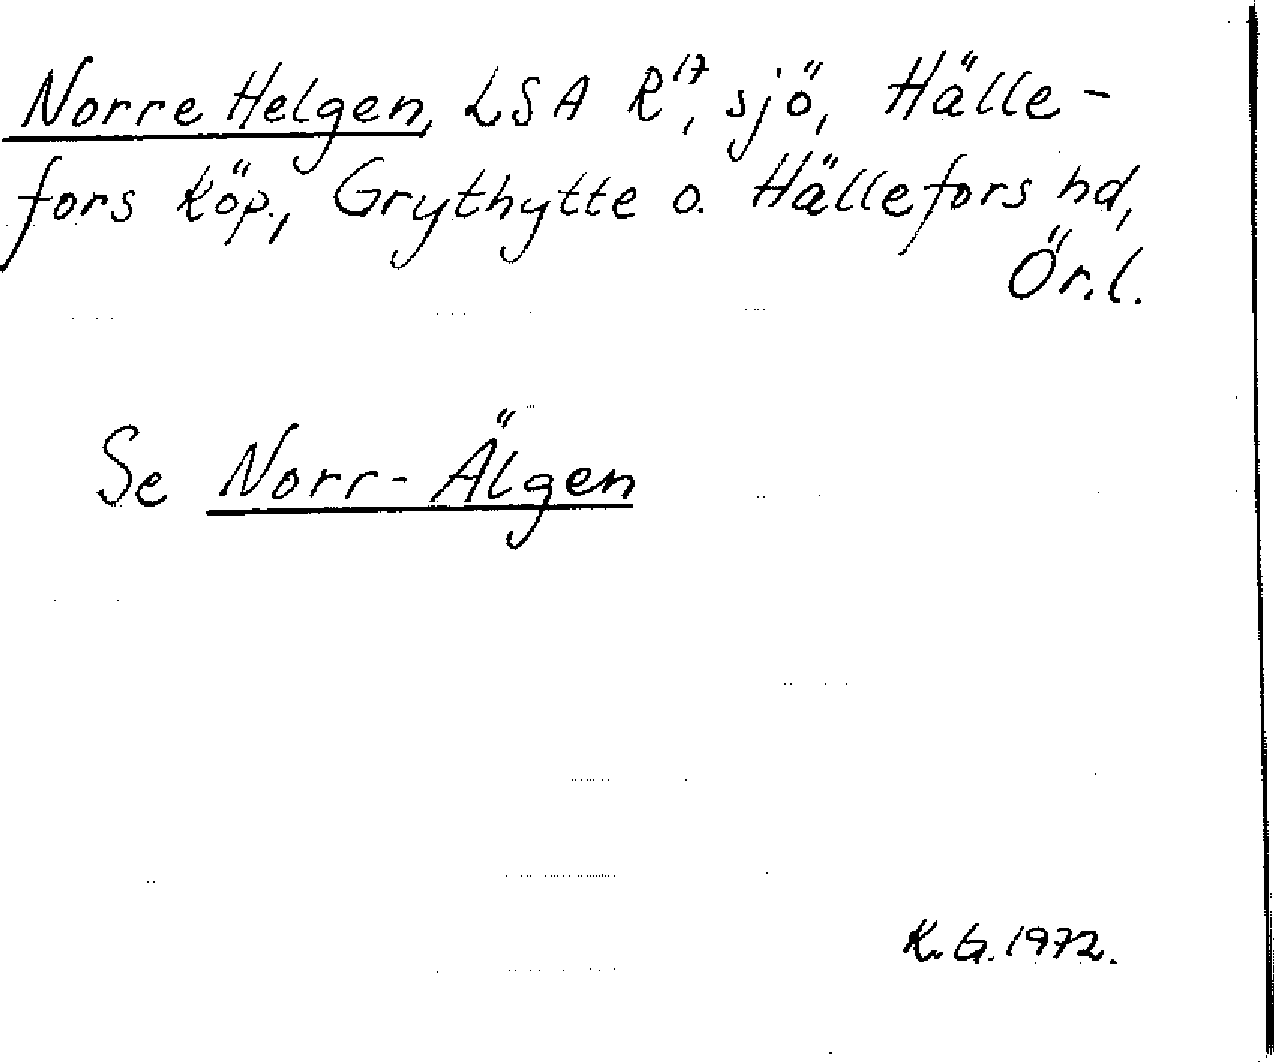 Norre Helgen, LSA R¹⁷, sjö, Hälle-
fors köp., Grythytte o. Hällefors hd,
Ör.l.
Se Norr-Älgen
K.G. 1972.